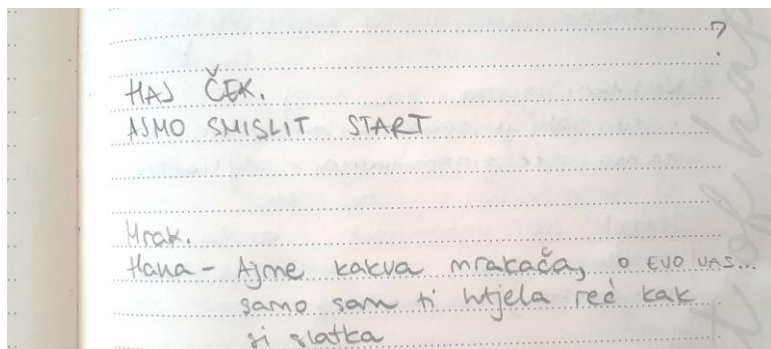 ?
HAJ ČEK.
AJMO SMISLIT START
Mrak.
Hana - Ajme kakva mrakača, O EVO VAS...
samo sam ti htjela reć kak
si slatka
t of hap